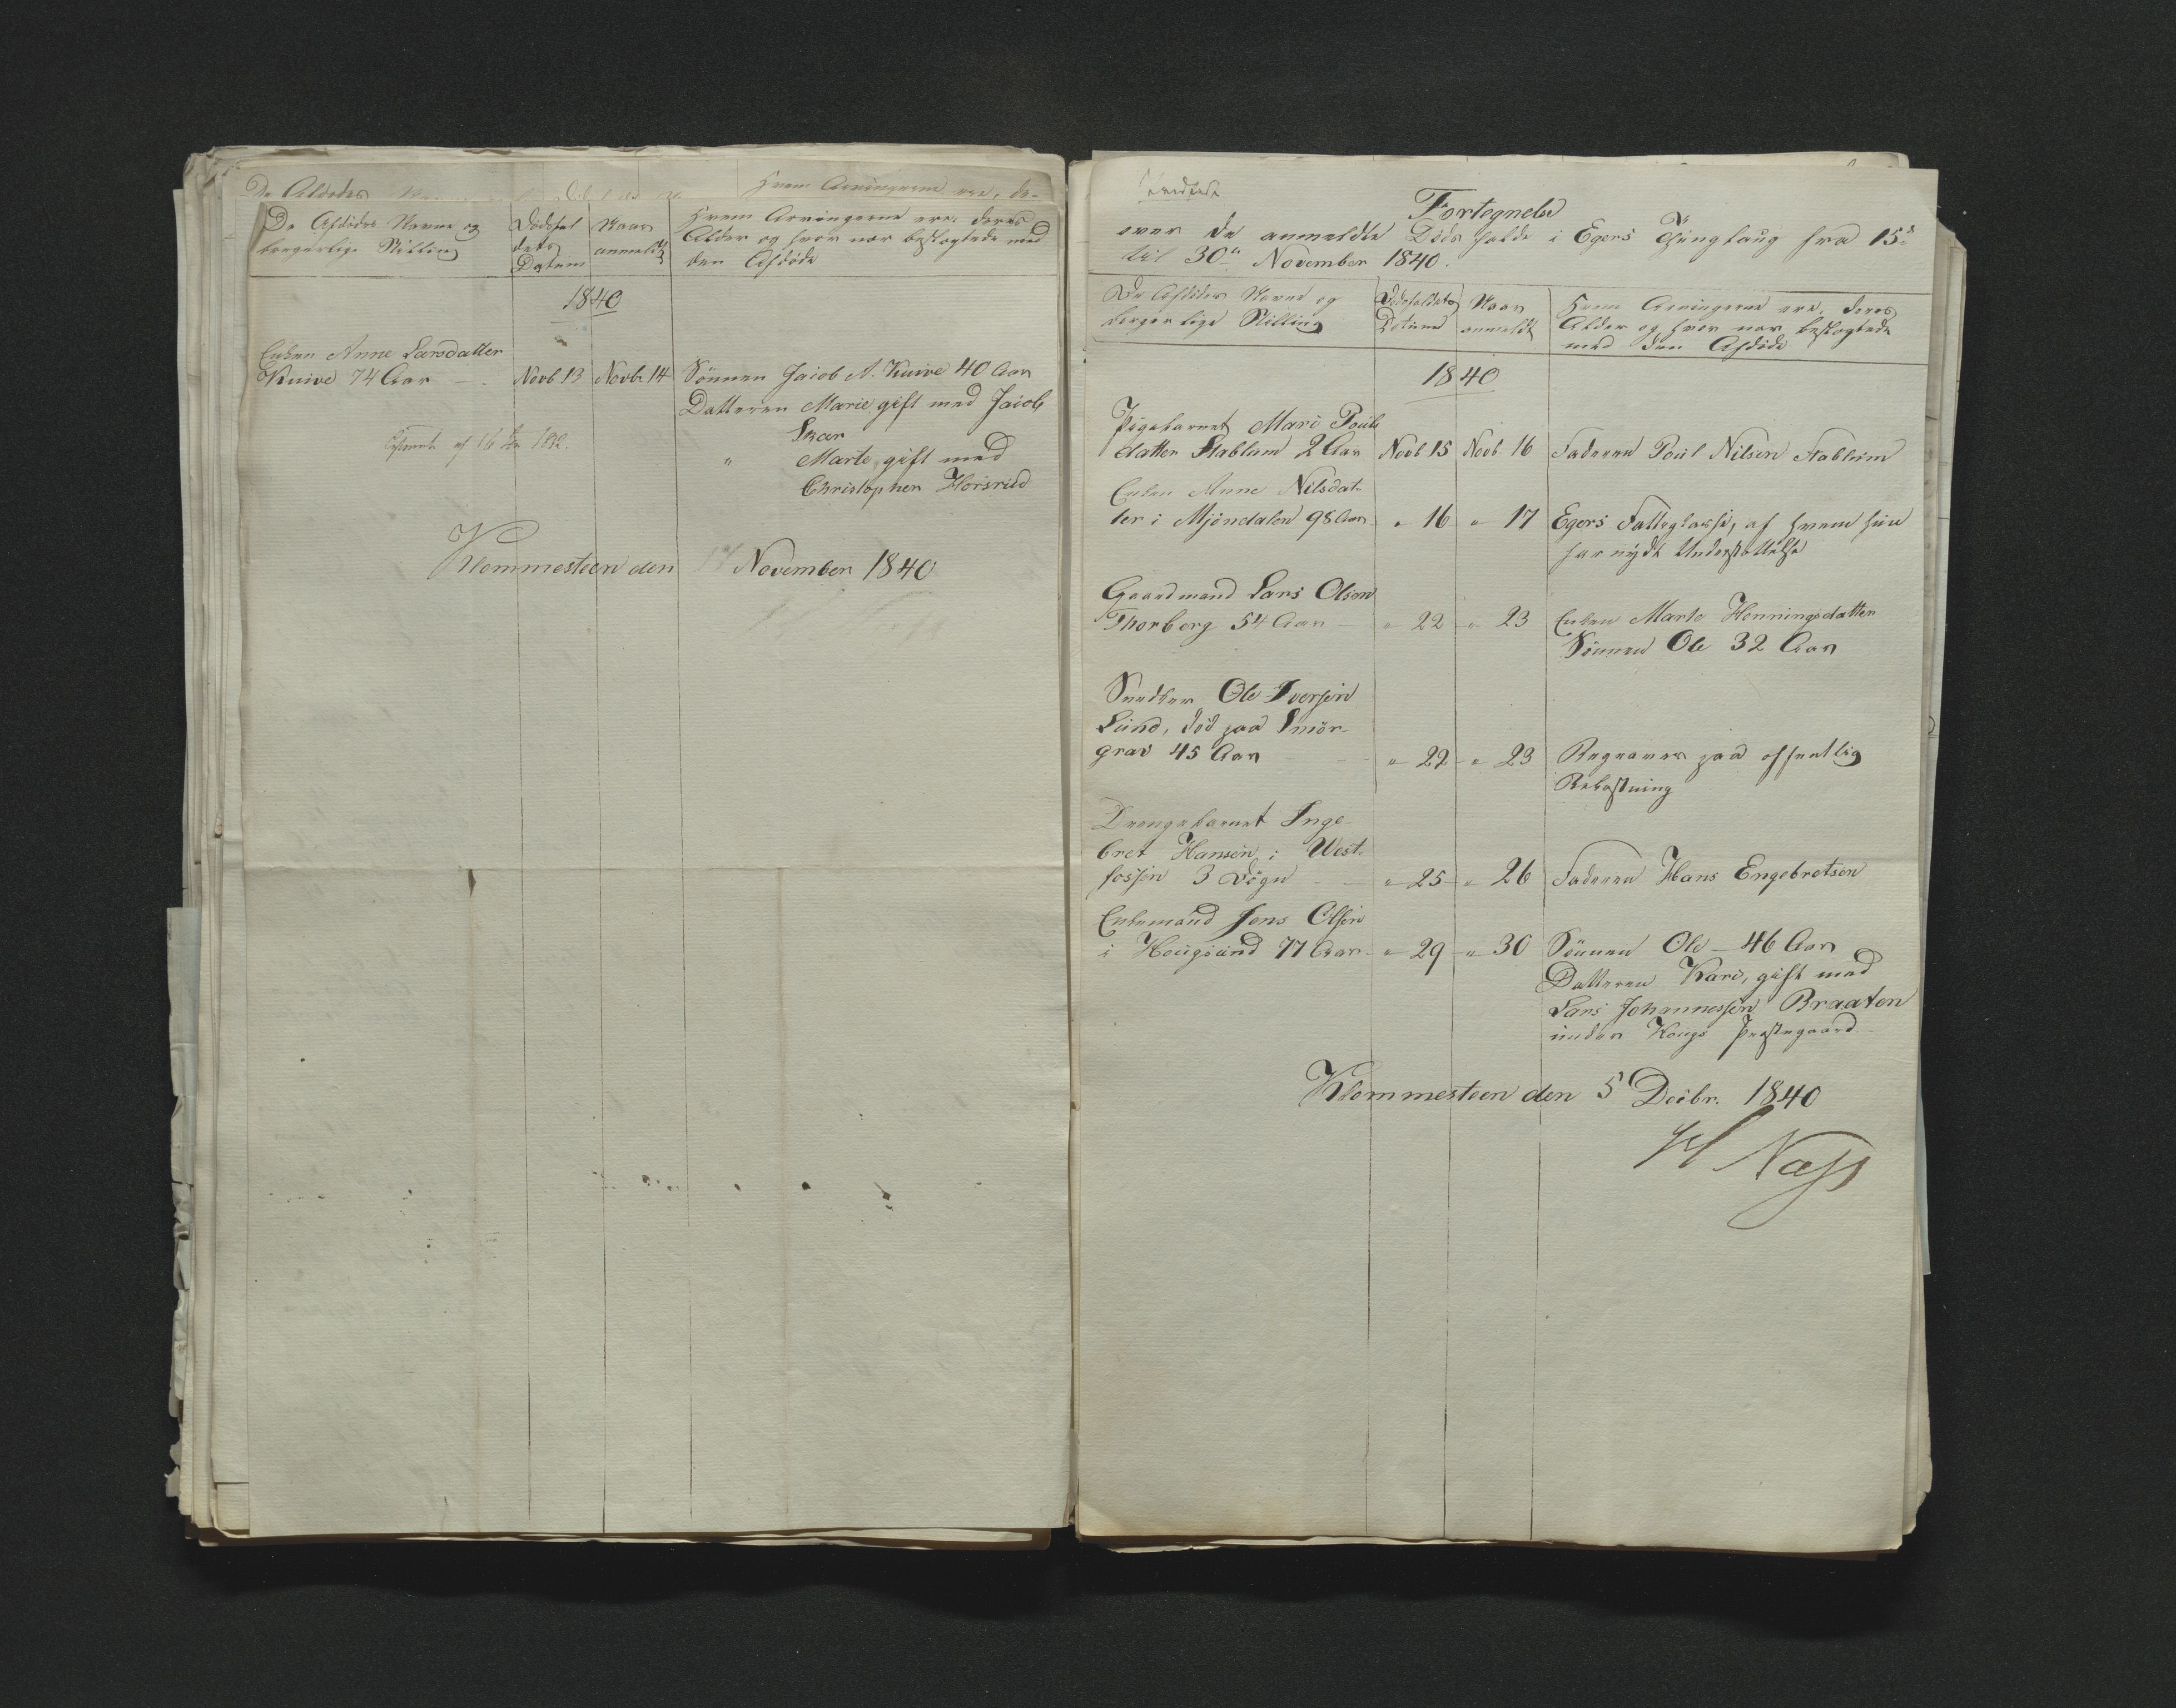 De Afdødes
Hvem Arvingerne ere, de-
De Afdødes Navne og
borgerlige Stilling
Dødsfal
dets
Datum
Naar
anmeldt
Hvem Arvingerne ere, deres
Alder og hvor nær beslægtede med
den Afdøde
1840
Enken Anne Larsdatter
Knive 74 Aar
Novb 13
Novb. 14
Sønnen Jacob A. Knive 40 Aar
Datteren Marie gift med Jacob
Skar
" Marte, gift med
Christopher Horsrud
Klommesteen den 17 November 1840
Fortegnelse
over de anmeldte Dødsfalde i Egers Thinglaug fra 15de
til 30te November 1840.
De Afdødes Navne og
borgerlige Stilling
Dødsfaldets
Datum
Naar
anmeldt
Hvem Arvingerne ere, deres
Alder og hvor nær beslægtede
med den Afdøde
1840
Pigebarnet Mari Pouls
datter Stablum 2 Aar
Novb 15
Novb 16
Faderen Poul Nilsen Stablum
Enken Anne Nilsdat-
ter i Mjøndalen 98 Aar
" 16
" 17
Egers Fattigkasse, af hvem hun
har nydt Understøttelse
Gaardmand Lars Olsen
Thorberg 54 Aar
" 22
" 23
Enken Marte Henningsdatter
Sønnen Ole 32 Aar
Snedker Ole Iversen
Lund, død paa Smør-
grav 45 Aar
" 22
" 23
Begraves paa offentlig
Bekostning
Drengebarnet Inge-
bret Hansen i West-
fossen 3 Døgn
" 25
" 26
Faderen Hans Engebretsen
Enkemand Jens Olsen
i Hougsund 77 Aar
" 29
" 30
Sønnen Ole 46 Aar
Datteren Kari, gift med
Lars Johannessen Braaten
under Hougs Præstegaard
Klommesteen den 5 Decbr. 1840
Næss